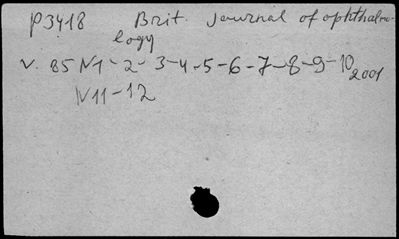 P3418 Brit. Journal of ophthalmo-
logy
v. 85 N1-2-3-4-5-6-7-8-9-10 2001
N11-12